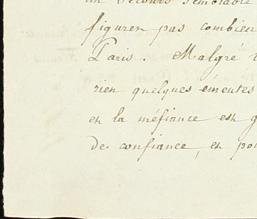 un secours semblable
figurer pas combien
Paris. Malgré
rien quelques émeutes
et la méfiance est g
de confiance, et pou